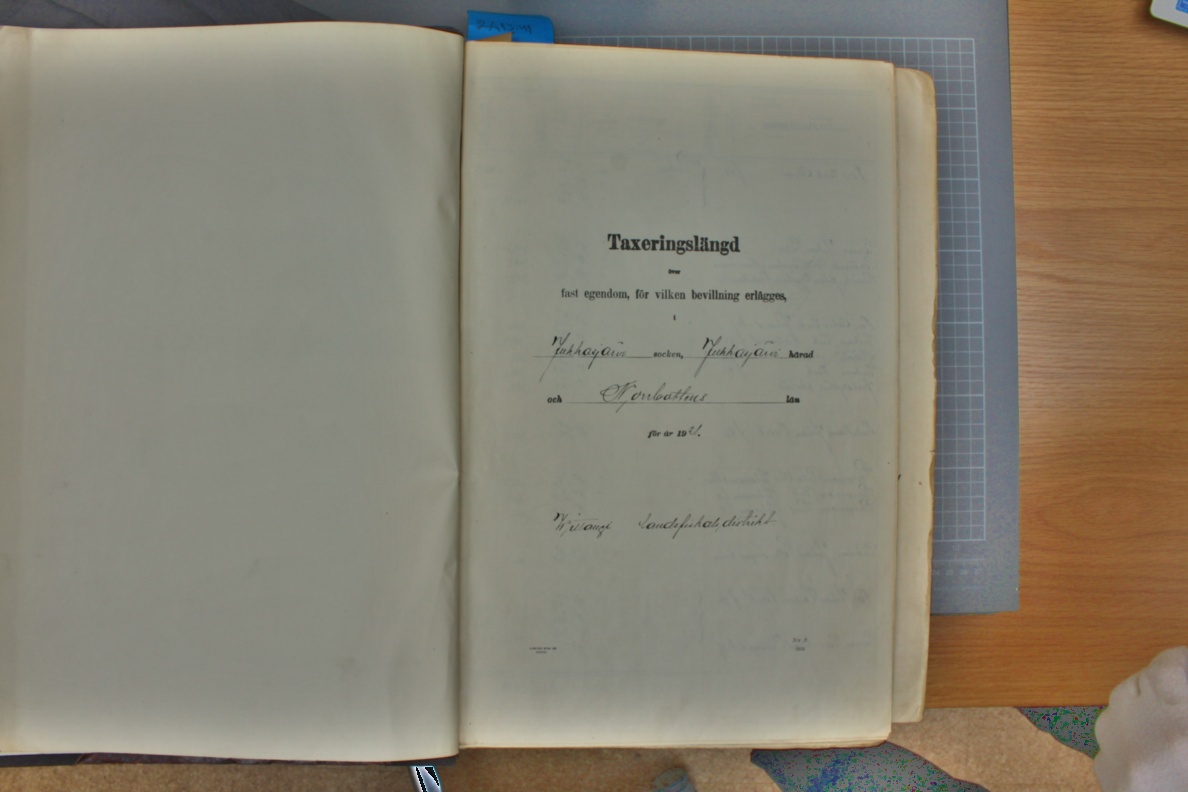 Taxeringslängd
över
fast egendom, för vilken bevillning erlägges,
i
Jukkasjärvi socken, Jukkasjärvi härad
och Norrbottens län
för år 1921.
Vittangi landsfiskalsdistrikt